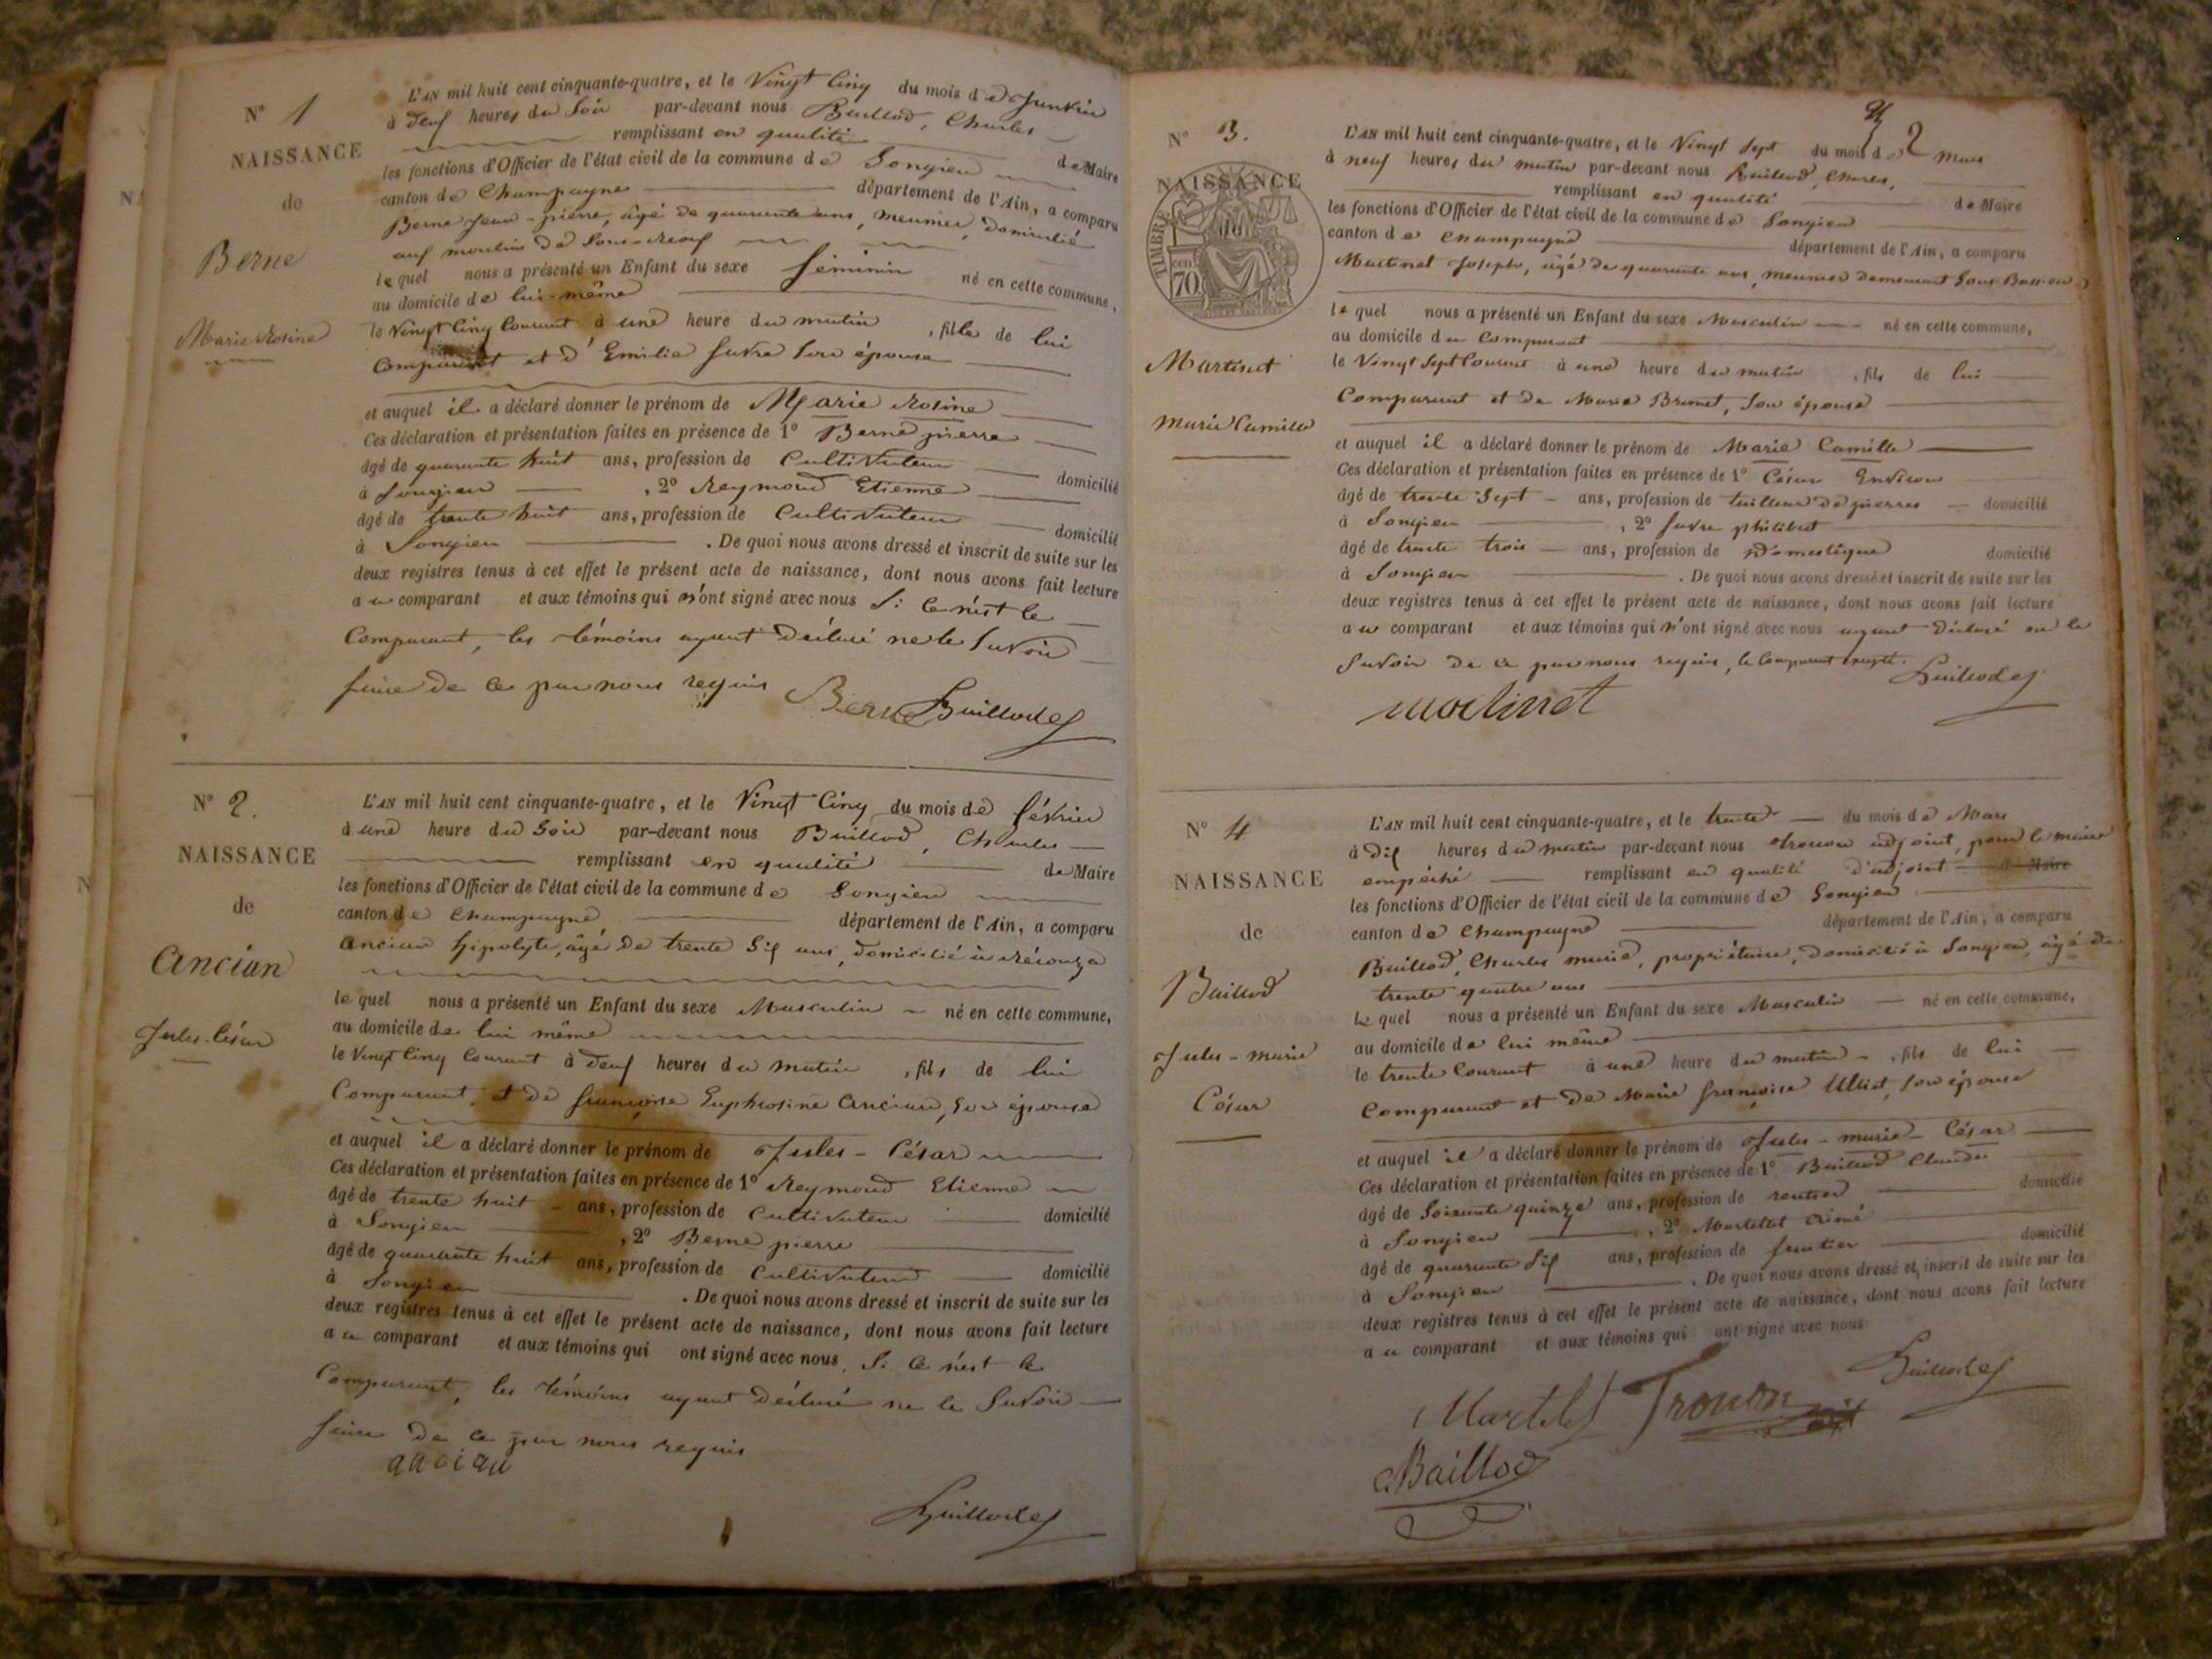 N° 1
NAISSANCE
de
Berne
Marie Rosine
L'AN mil huit cent cinquante-quatre, et le Vingt Cinq du mois de Janvier
à Deux heures du Soir par-devant nous Baillod, Charles
remplissant en qualité de Maire
les fonctions d'Officier de l'état civil de la commune de Songieu
canton de Champagne département de l'Ain, a comparu
Berne Jean-pierre, âgé de quarante ans, meunier, domicilié
aux moulin de
le quel nous a présenté un Enfant du sexe féminin né en cette commune,
au domicile de lui-même
le Vingt Cinq Courant à une heure du matin, fille de lui
Comparant et d'Emilie favre son épouse
et auquel il a déclaré donner le prénom de Marie Rosine
Ces déclaration et présentation faites en présence de 1° Berne pierre
âgé de quarante huit ans, profession de Cultivateur domicilié
à Songieu, 2° Reymond Etienne
âgé de trente huit ans, profession de Cultivateur domicilié
à Songieu. De quoi nous avons dressé et inscrit de suite sur les
deux registres tenus à cet effet le présent acte de naissance, dont nous avons fait lecture
au comparant et aux témoins qui n'ont signé avec nous Si Ce n'est le
Comparant, les témoins ayant déclaré ne le Savoir
faire de Ce par nous requis
Berne Baillod
N° 2.
NAISSANCE
de
Ancian
Jules-César
L'AN mil huit cent cinquante-quatre, et le Vingt Cinq du mois de février
à une heure du Soir par-devant nous Baillod, Charles
remplissant en qualité de Maire
les fonctions d'Officier de l'état civil de la commune de Songieu
canton de Champagne département de l'Ain, a comparu
Ancian hipolyte, âgé de trente Six ans, domicilié à
le quel nous a présenté un Enfant du sexe Masculin né en cette commune,
au domicile de lui même
le Vingt Cinq Courant à Deux heures du matin, fils de lui
Comparant, et de françoise Euphrosine Ancian, son épouse
et auquel il a déclaré donner le prénom de Jules-César
Ces déclaration et présentation faites en présence de 1° Reymond Etienne
âgé de trente huit ans, profession de Cultivateur domicilié
à Songieu, 2° Berne pierre
âgé de quarante huit ans, profession de Cultivateur domicilié
à Songieu. De quoi nous avons dressé et inscrit de suite sur les
deux registres tenus à cet effet le présent acte de naissance, dont nous avons fait lecture
au comparant et aux témoins qui ont signé avec nous, Si Ce n'est le
Comparant, les témoins ayant déclaré ne le Savoir
faire de Ce par nous requis
ancian
Baillod
2
N° 3.
NAISSANCE
TIMBRE
cen
70
Martinet
Marie Camille
L'AN mil huit cent cinquante-quatre, et le Vingt Sept du mois de mars
à neuf heures du matin par-devant nous Baillod, Charles,
remplissant en qualité de Maire
les fonctions d'Officier de l'état civil de la commune de Songieu
canton de Champagne département de l'Ain, a comparu
Martinet Joseph, âgé de quarante ans, meunier demeurant
le quel nous a présenté un Enfant du sexe Masculin né en cette commune,
au domicile du Comparant
le Vingt Sept Courant à une heure du matin, fils de lui
Comparant et de Marie Brunet, son épouse
et auquel il a déclaré donner le prénom de Marie Camille
Ces déclaration et présentation faites en présence de 1° César
âgé de trente Sept ans, profession de tailleur de pierres domicilié
à Songieu, 2° favre philibert
âgé de trente trois ans, profession de Domestique domicilié
à Songieu. De quoi nous avons dressé et inscrit de suite sur les
deux registres tenus à cet effet le présent acte de naissance, dont nous avons fait lecture
au comparant et aux témoins qui n'ont signé avec nous ayant déclaré ne le
Savoir de Ce par nous requis, le Comparant excepté.
Baillod
martinet
N° 4
NAISSANCE
de
Baillod
Jules-marie
César
L'AN mil huit cent cinquante-quatre, et le trente du mois de Mars
à Dix heures du matin par-devant nous Trouon adjoint, pour le maire
empêché remplissant en qualité d'adjoint de Maire
les fonctions d'Officier de l'état civil de la commune de Songieu
canton de Champagne département de l'Ain, a comparu
Baillod, Charles marie, propriétaire, Domicilié à Songieu, âgé de
trente quatre ans
le quel nous a présenté un Enfant du sexe Masculin né en cette commune,
au domicile de lui même
le trente Courant à une heure du matin, fils de lui
Comparant et de Marie françoise Ulliet, son épouse
et auquel il a déclaré donner le prénom de Jules-marie-César
Ces déclaration et présentation faites en présence de 1° Baillod Claude
âgé de Soixante quinze ans, profession de rentier domicilié
à Songieu, 2° Martelet aimé
âgé de quarante Six ans, profession de fruitier domicilié
à Songieu. De quoi nous avons dressé et inscrit de suite sur les
deux registres tenus à cet effet le présent acte de naissance, dont nous avons fait lecture
au comparant et aux témoins qui ont signé avec nous
Baillod
Martelet Trouon
Baillod